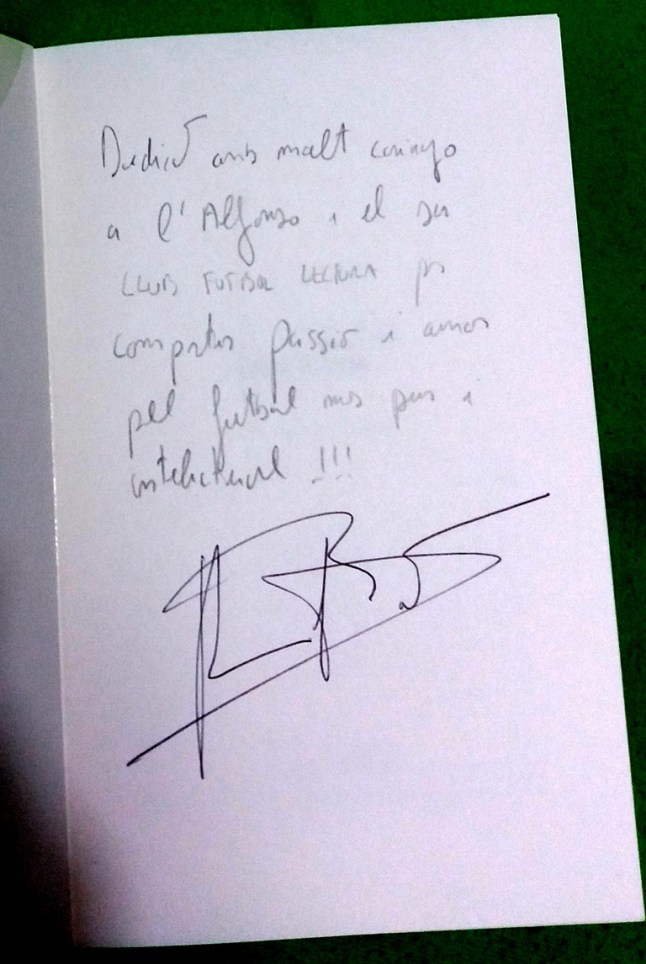 Dedicat amb molt carinyo
a l'Alfonso i el seu
FUTBOL LECTURA per
compartir passió i amor
pel futbol més pur i
intelectual !!!